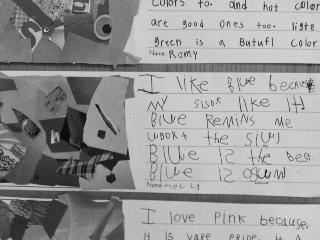 colors to. and hot color
are good ones too. ligte
green is a Butufl Color
Name: Romy
I like Blue because
my sisdr like it!
Blue Remins me
ubort the
Blue is the Best
Blue is
Name: Molly
I love Pink because.
it is